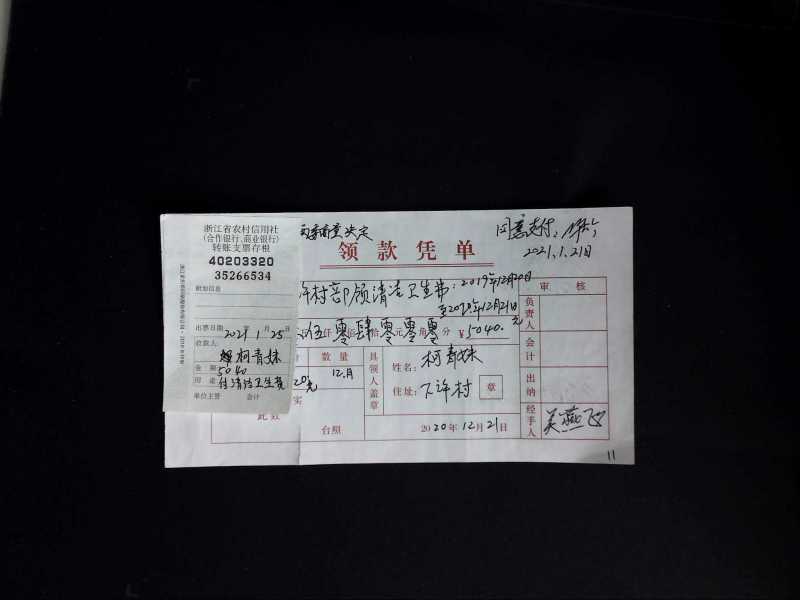 浙江省农村信用社
(合作银行、商业银行)
转账支票存根
40203320
35266534
附加信息
出票日期 2021年1月25日
收款人:
柯青妹
金额: 5040
用途: 付清洁卫生费
单位主管 会计
商量决定
同意支付,
2021.1.21日
领款凭单
许村部领清洁卫生费:2019年12月20日
至2020年12月21日
伍仟零佰肆拾零元零角零分 ¥5040.元
数量
12月
20元
实
此致
台照
具领人盖章
姓名: 柯青妹
住址: 下许村
章
2020年12月21日
审核
负责人
会计
出纳
经手人 吴燕飞
11